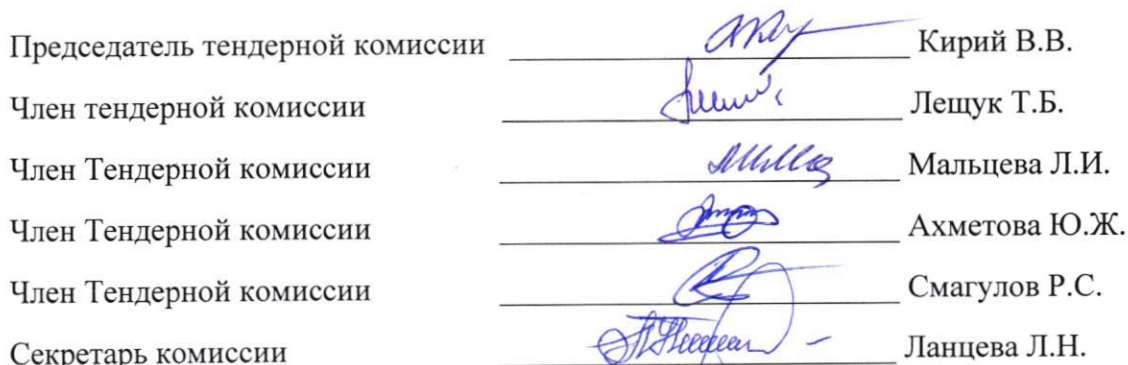 Председатель тендерной комиссии Кирий В.В.
Член тендерной комиссии Лещук Т.Б.
Член Тендерной комиссии Мальцева Л.И.
Член Тендерной комиссии Ахметова Ю.Ж.
Член Тендерной комиссии Смагулов Р.С.
Секретарь комиссии Ланцева Л.Н.